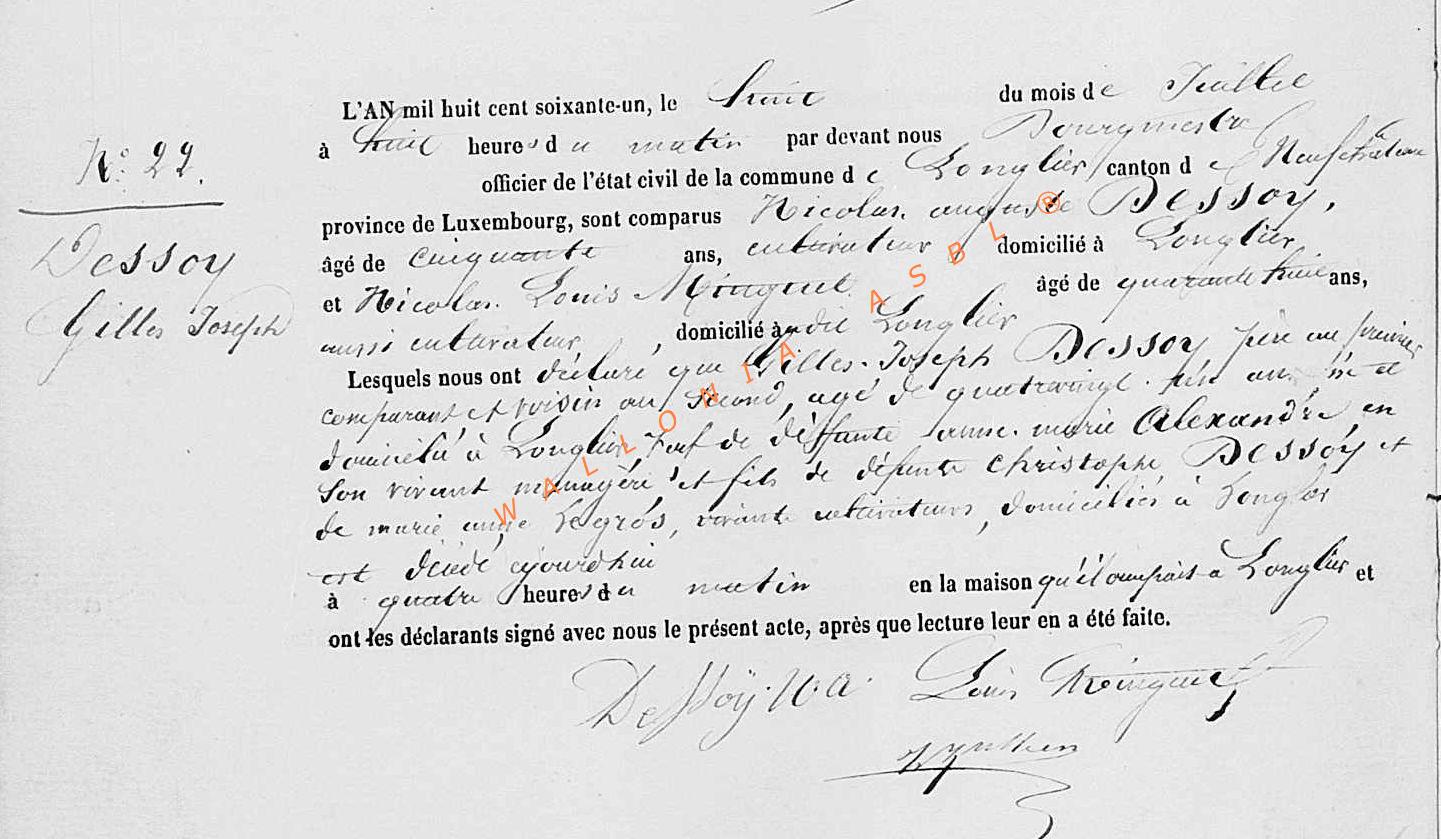 L'AN mil huit cent soixante-un, le huit du mois de Juillet
à huit heures du matin par devant nous Bourgmestre
N.º 22.
officier de l'état civil de la commune de Longlier canton de Neufchâteau
province de Luxembourg, sont comparus Nicolas auguste Dessoy,
Dessoy
âgé de cinquante ans, cultivateur domicilié à Longlier
et Nicolas Louis Minguet âgé de quarante huit ans,
Gilles Joseph
aussi cultivateur, domicilié à dit Longlier
Lesquels nous ont déclaré que Gilles-Joseph Dessoy, père au premier
comparant et voisin au second, agé de quatrevingt ans, né et
domicilié à Longlier, veuf de déffunte anne-marie Alexandre, en
son vivant ménagère et fils de défunts Christophe Dessoy et
de marie anne Legros, vivants cultivateurs, domiciliés à Longlier
est décédé ajourdhui
à quatre heures du matin en la maison qu'il occupait à Longlier et
ont les déclarants signé avec nous le présent acte, après que lecture leur en a été faite.
Dessoÿ. N. A. Louis Minguet
WALLONIA ASBL ®